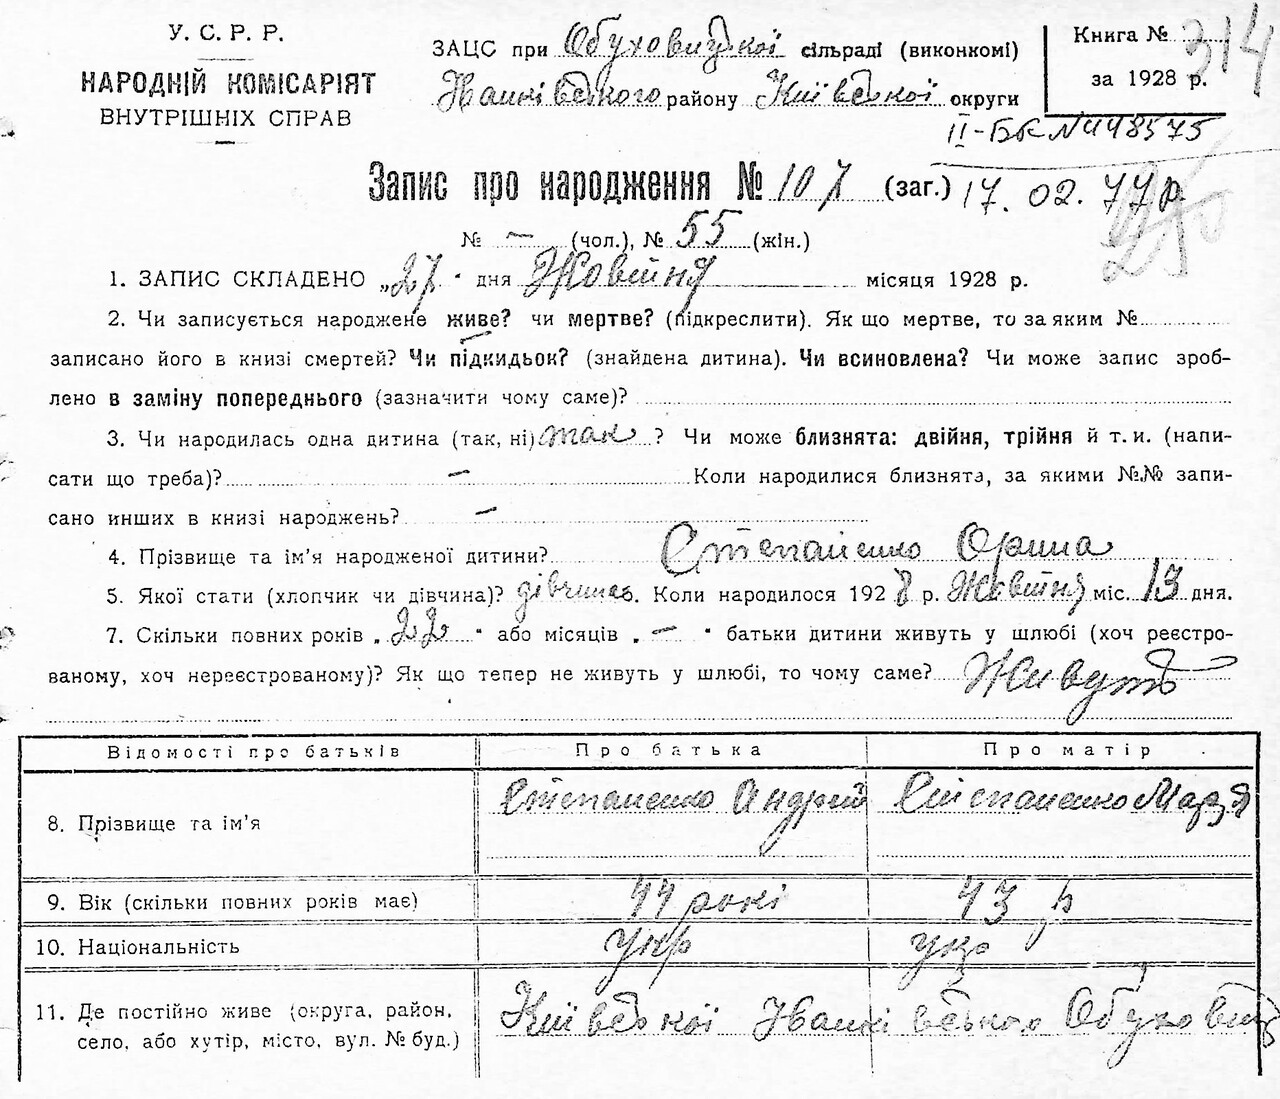 У. С. Р. Р.
НАРОДНІЙ КОМІСАРІЯТ
ВНУТРІШНІХ СПРАВ
ЗАЦС при Обуховицкої сільраді (виконкомі)
Іванківського району Київської округи
Книга № 314
за 1928 р.
II-БК №448575
Запис про народження № 107 (заг.) 17.02.77 р.
№ — (чол.), № 55 (жін.)
1. ЗАПИС СКЛАДЕНО „27" дня Жовтня місяця 1928 р.
2. Чи записується народжене живе? чи мертве? (підкреслити). Як що мертве, то за яким №
записано його в книзі смертей? Чи підкидьок? (знайдена дитина). Чи всиновлена? Чи може запис зроб-
лено в заміну попереднього (зазначити чому саме)?
3. Чи народилась одна дитина (так, ні) так ? Чи може близнята: двійня, трійня й т. и. (напи-
сати що треба)? — Коли народилися близнята, за якими №№ запи-
сано инших в книзі народжень? —
4. Прізвище та ім'я народженої дитини? Степаненко Орина
5. Якої стати (хлопчик чи дівчина)? дівчина. Коли народилося 1928 р. Жовтня міс. 13 дня.
7. Скільки повних років „22" або місяців „—" батьки дитини живуть у шлюбі (хоч реєстро-
ваному, хоч нереєстрованому)? Як що тепер не живуть у шлюбі, то чому саме? Живуть
Відомості про батьків Про батька Про матір
8. Прізвище та ім'я Степаненко Андрій Степаненко Марія
9. Вік (скільки повних років має) 44 рокі 43 р
10. Національність укр укр
11. Де постійно живе (округа, район, Київської Іванківського Обуховиц
село, або хутір, місто, вул. № буд.)